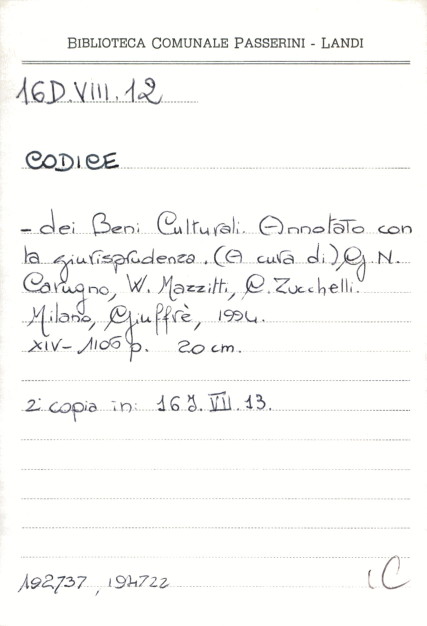 BIBLIOTECA COMUNALE PASSERINI - LANDI
16D.VIII.12
CODICE
- dei Beni Culturali. Annotato con
la giurisprudenza. (A cura di) G.N.
Carugno, W. Mazzitti, C. Zucchelli.
Milano, Giuffrè, 1994.
XIV- 1106 p. 20 cm.
2ª copia in: 16 J. VII. 13.
192737, 194722